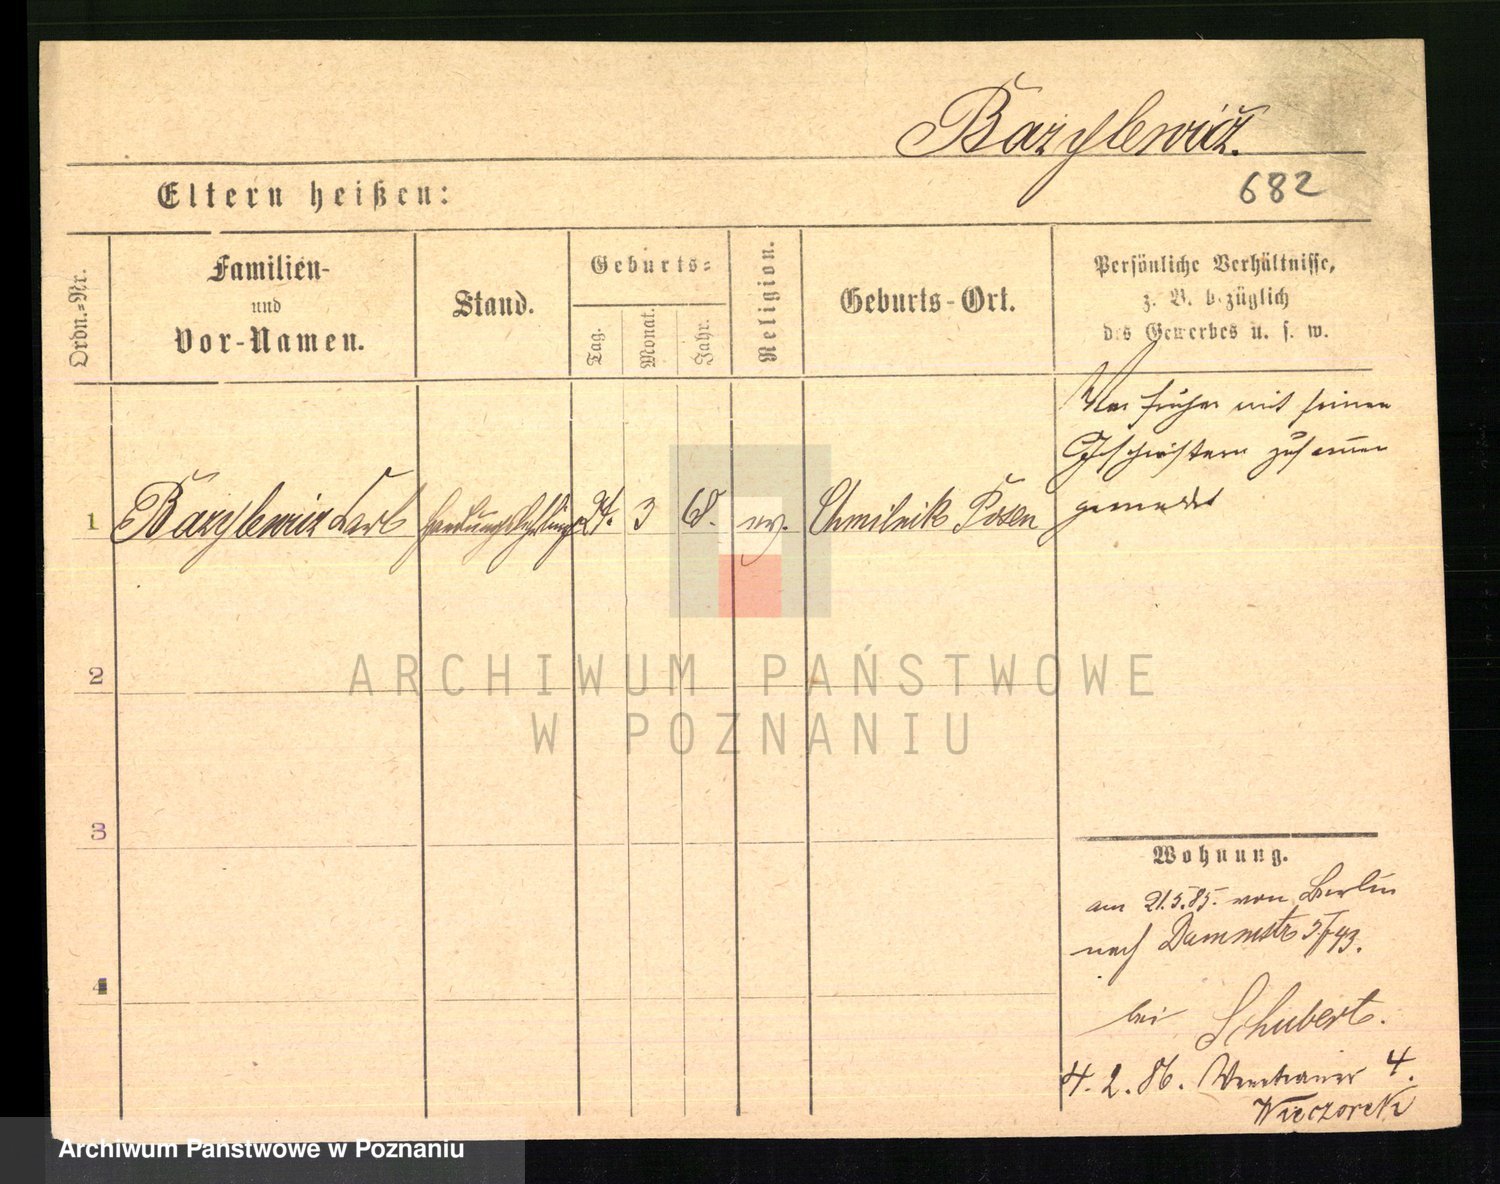 Bazylewicz.
Eltern heißen:
682
Ordn.-Nr.
Familien-
und
Vor-Namen.
Stand.
Geburts-
Tag.
Monat.
Jahr.
Religion.
Geburts-Ort.
Persönliche Verhältnisse,
z. B. bezüglich
des Gewerbes u. s. w.
War früher mit seinen
Geschwistern zusammen
gemeldet
1 Bazylewicz Carl Handlungslehrling 24. 3 68. ev. Chmilnik Posen
2
3
4
Wohnung.
am 21.5.85. von Berlin
nach Dammstr 5/43.
bei Schubert.
4. 2. 86. 4.
Wieczorek
ARCHIWUM PAŃSTWOWE
W POZNANIU
Archiwum Państwowe w Poznaniu